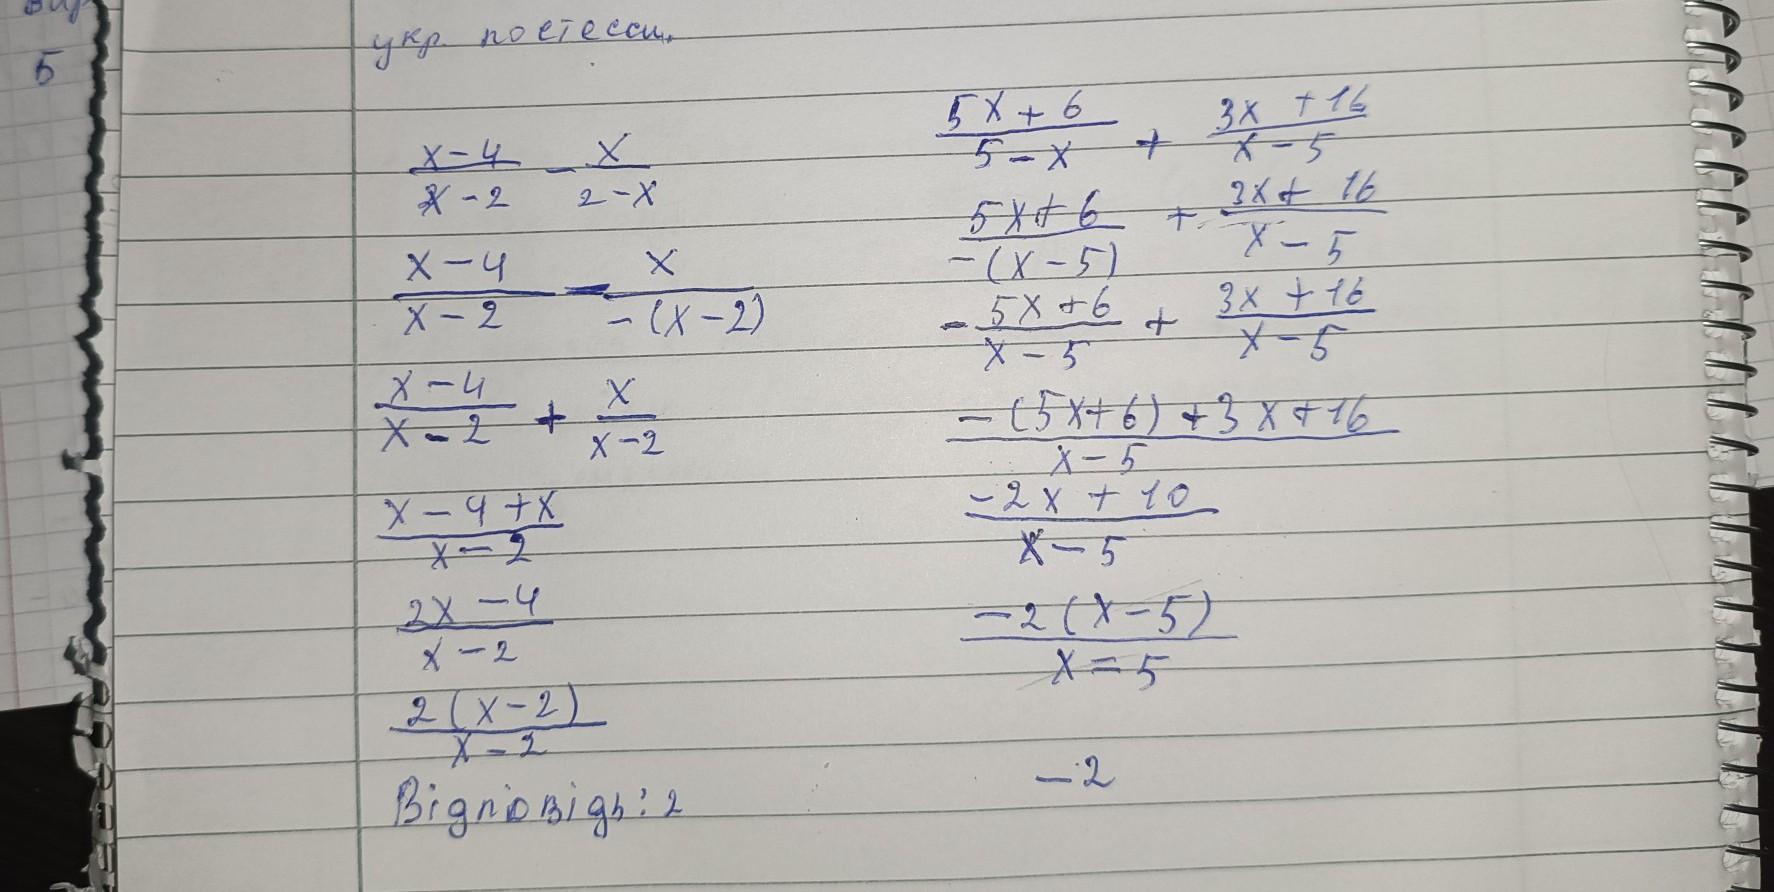 5
укр.
x-4/x-2 - x/2-x
x-4/x-2 - x/-(x-2)
x-4/x-2 + x/x-2
x-4+x/x-2
2x-4/x-2
2(x-2)/x-2
Відповідь: 2
5x+6/5-x + 3x+16/x-5
5x+6/-(x-5) + 3x+16/x-5
- 5x+6/x-5 + 3x+16/x-5
-(5x+6)+3x+16/x-5
-2x+10/x-5
-2(x-5)/x=5
-2